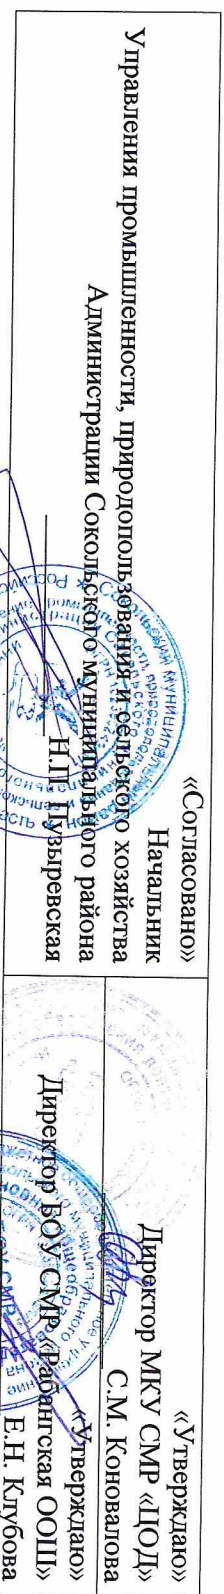 «Согласовано»
Начальник
Управления промышленности, природопользования и сельского хозяйства
Администрации Сокольского муниципального района
Н.П. Пузыревская
«Утверждаю»
Директор МКУ СМР «ЦОД»
С.М. Коновалова
«Утверждаю»
Директор БОУ СМР «Рабангская ООШ»
Е.Н. Клубова